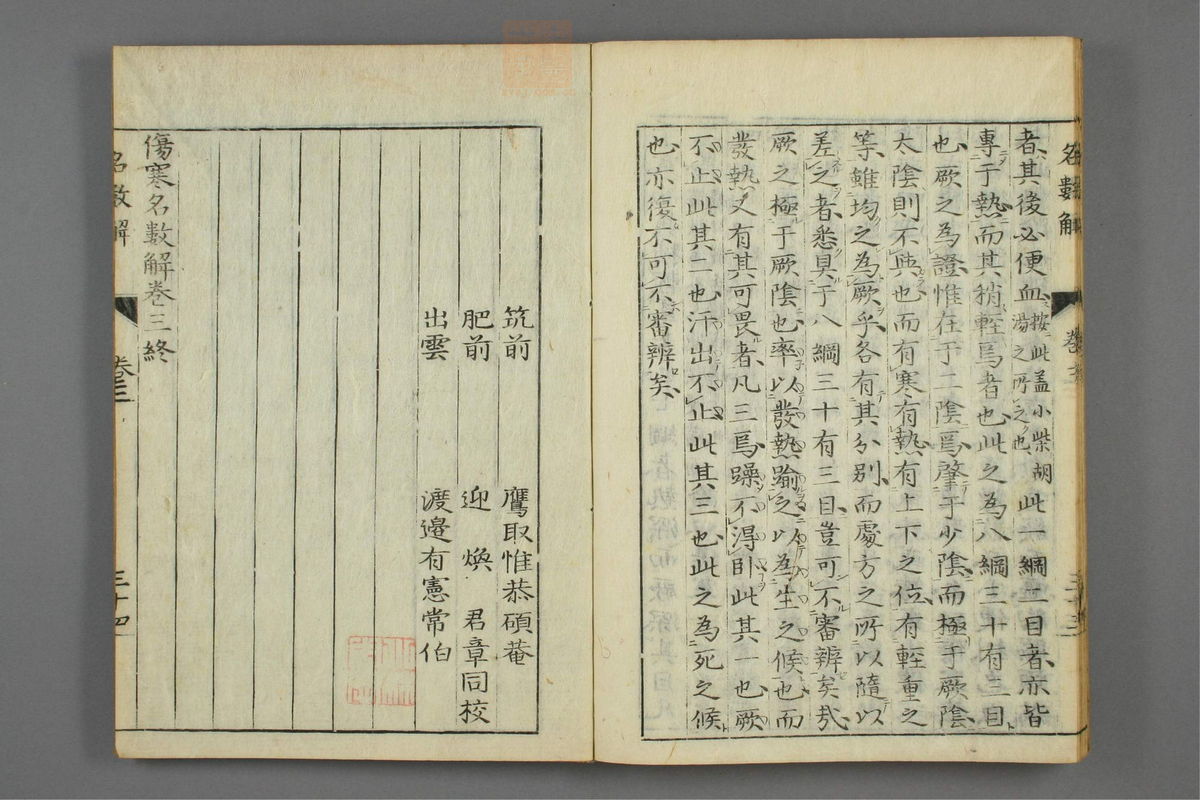 名數解
卷三
三十三
者其後必便血按此蓋小柴胡湯之所之也此一綱二目者亦皆
專于熱而其稍輕焉者也此之為八綱三十有三目
也厥之為證惟在于二陰焉肇于少陰而極于厥陰
太陰則不與也而有寒有熱有上下之位有輕重之
等雖均之為厥乎各有其分別而處方之所以隨以
差之者悉具于八綱三十有三目豈可不審辨矣哉
厥之極于厥陰也率以發熱踰之以為生之候也而
發熱又有其可畏者凡三焉躁不得臥此其一也厥
不止此其二也汗出不止此其三也此之為死之候
也亦復不可不審辨矣
筑前　鷹取惟恭碩菴
肥前　迎煥　君章同校
出雲　渡邉有憲常伯
傷寒名數解卷三終
名數解
卷三
三十四